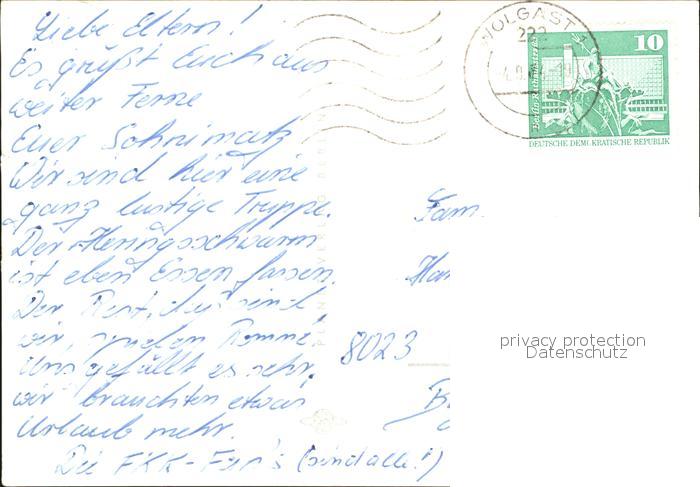 Liebe Eltern!
Es grüßt Euch aus
weiter Ferne
Euer Sohnimatz
Wir sind hier eine
ganz lustige Truppe.
Der Heringsschwarm
ist eben Essen fassen.
Der Rest, das sind
wir, spielen Rommé.
Uns gefällt es sehr,
wir brauchten etwas
Urlaub mehr.
Die FKK-Fan's (sind alle!)
WOLGAST 1
222
10
Berlin
DEUTSCHE DEMOKRATISCHE REPUBLIK
Fam.
8023
privacy protection
Datenschutz